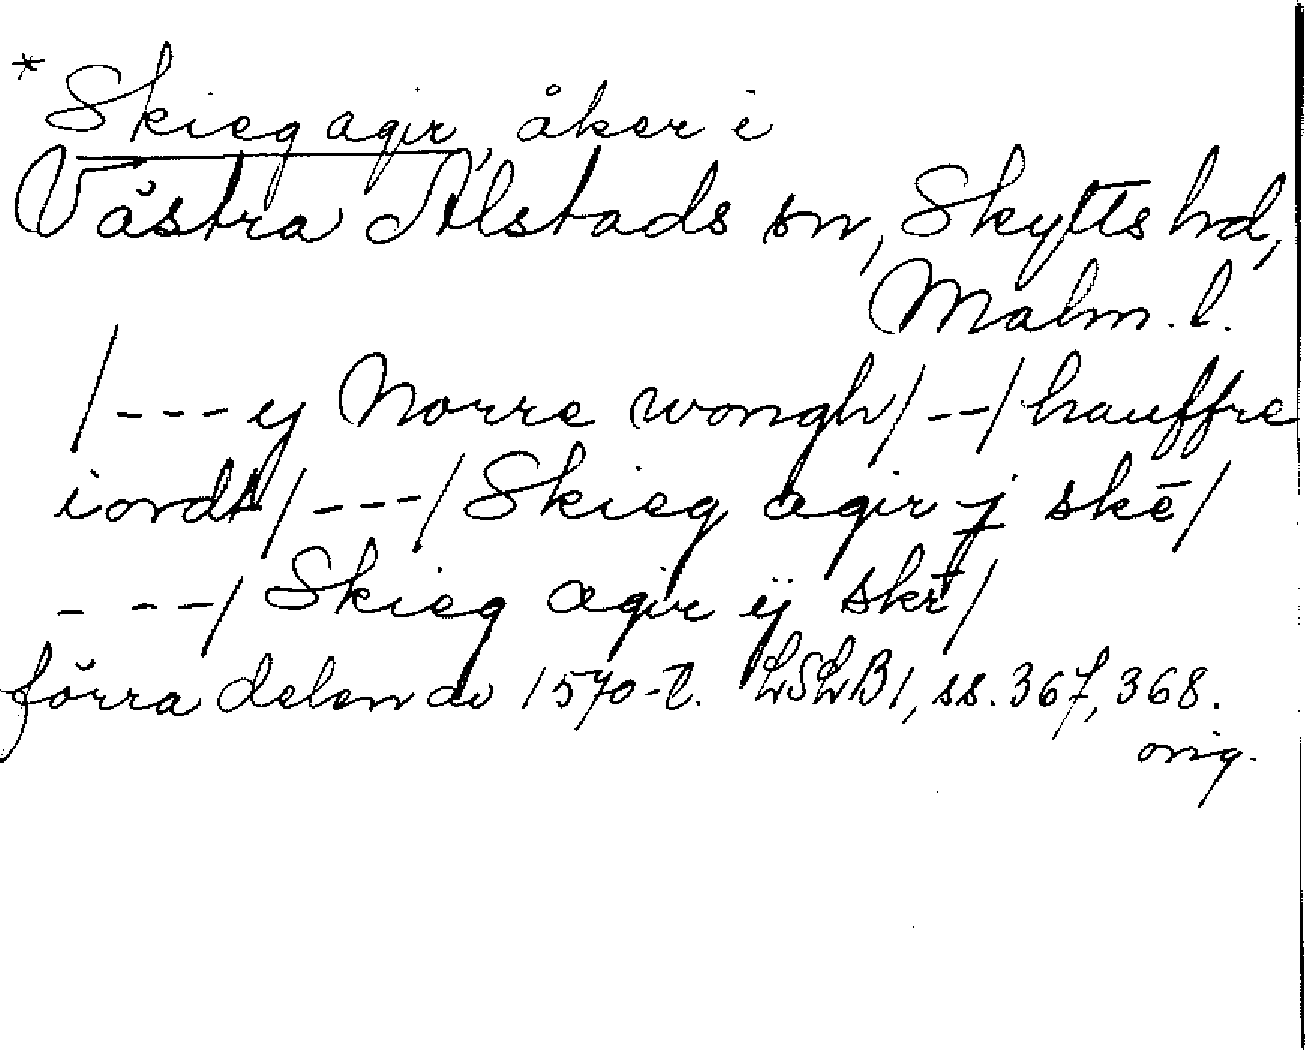 * Skieg agir, åker i
Västra Alstads sn, Skytts hd,
Malm. l.
/---y Norre wongh/--/hauffre
iordt/---/Skieg agir j skē/
---/Skieg agir ij skē/
förra delen av 1570-t. LSLB1, ss. 367, 368.
orig.